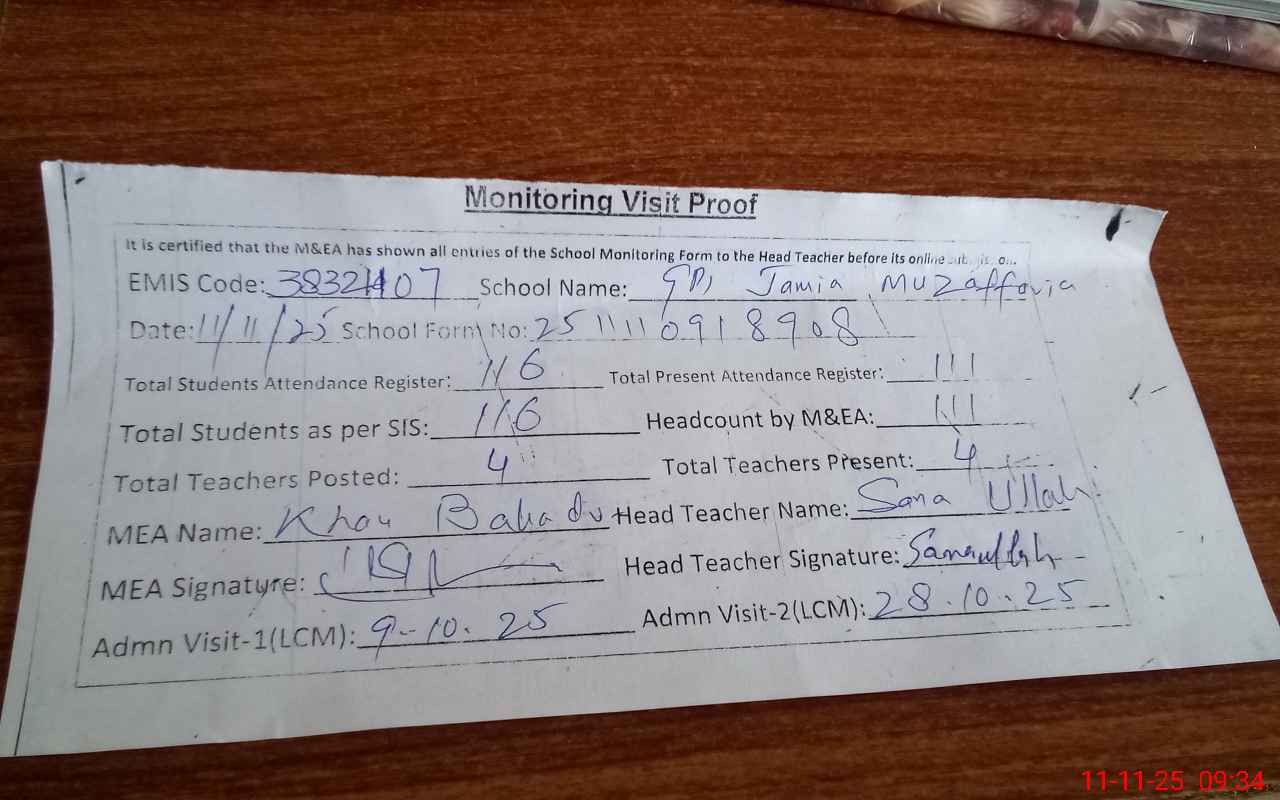 Monitoring Visit Proof
It is certified that the M&EA has shown all entries of the School Monitoring Form to the Head Teacher before its online
EMIS Code: School Name: Jamia Muzaffaria
Date: 11/11/25 School Form No: 2511110918908
Total Students Attendance Register: 116 Total Present Attendance Register: 111
Total Students as per SIS: 116 Headcount by M&EA: 111
Total Teachers Posted: 4 Total Teachers Present: 4
MEA Name: Khan Bahadur Head Teacher Name: Sana Ullah
MEA Signature: Head Teacher Signature: Sanaullah
Admn Visit-1(LCM): 9-10.25 Admn Visit-2(LCM): 28.10.25
11-11-25 09:34